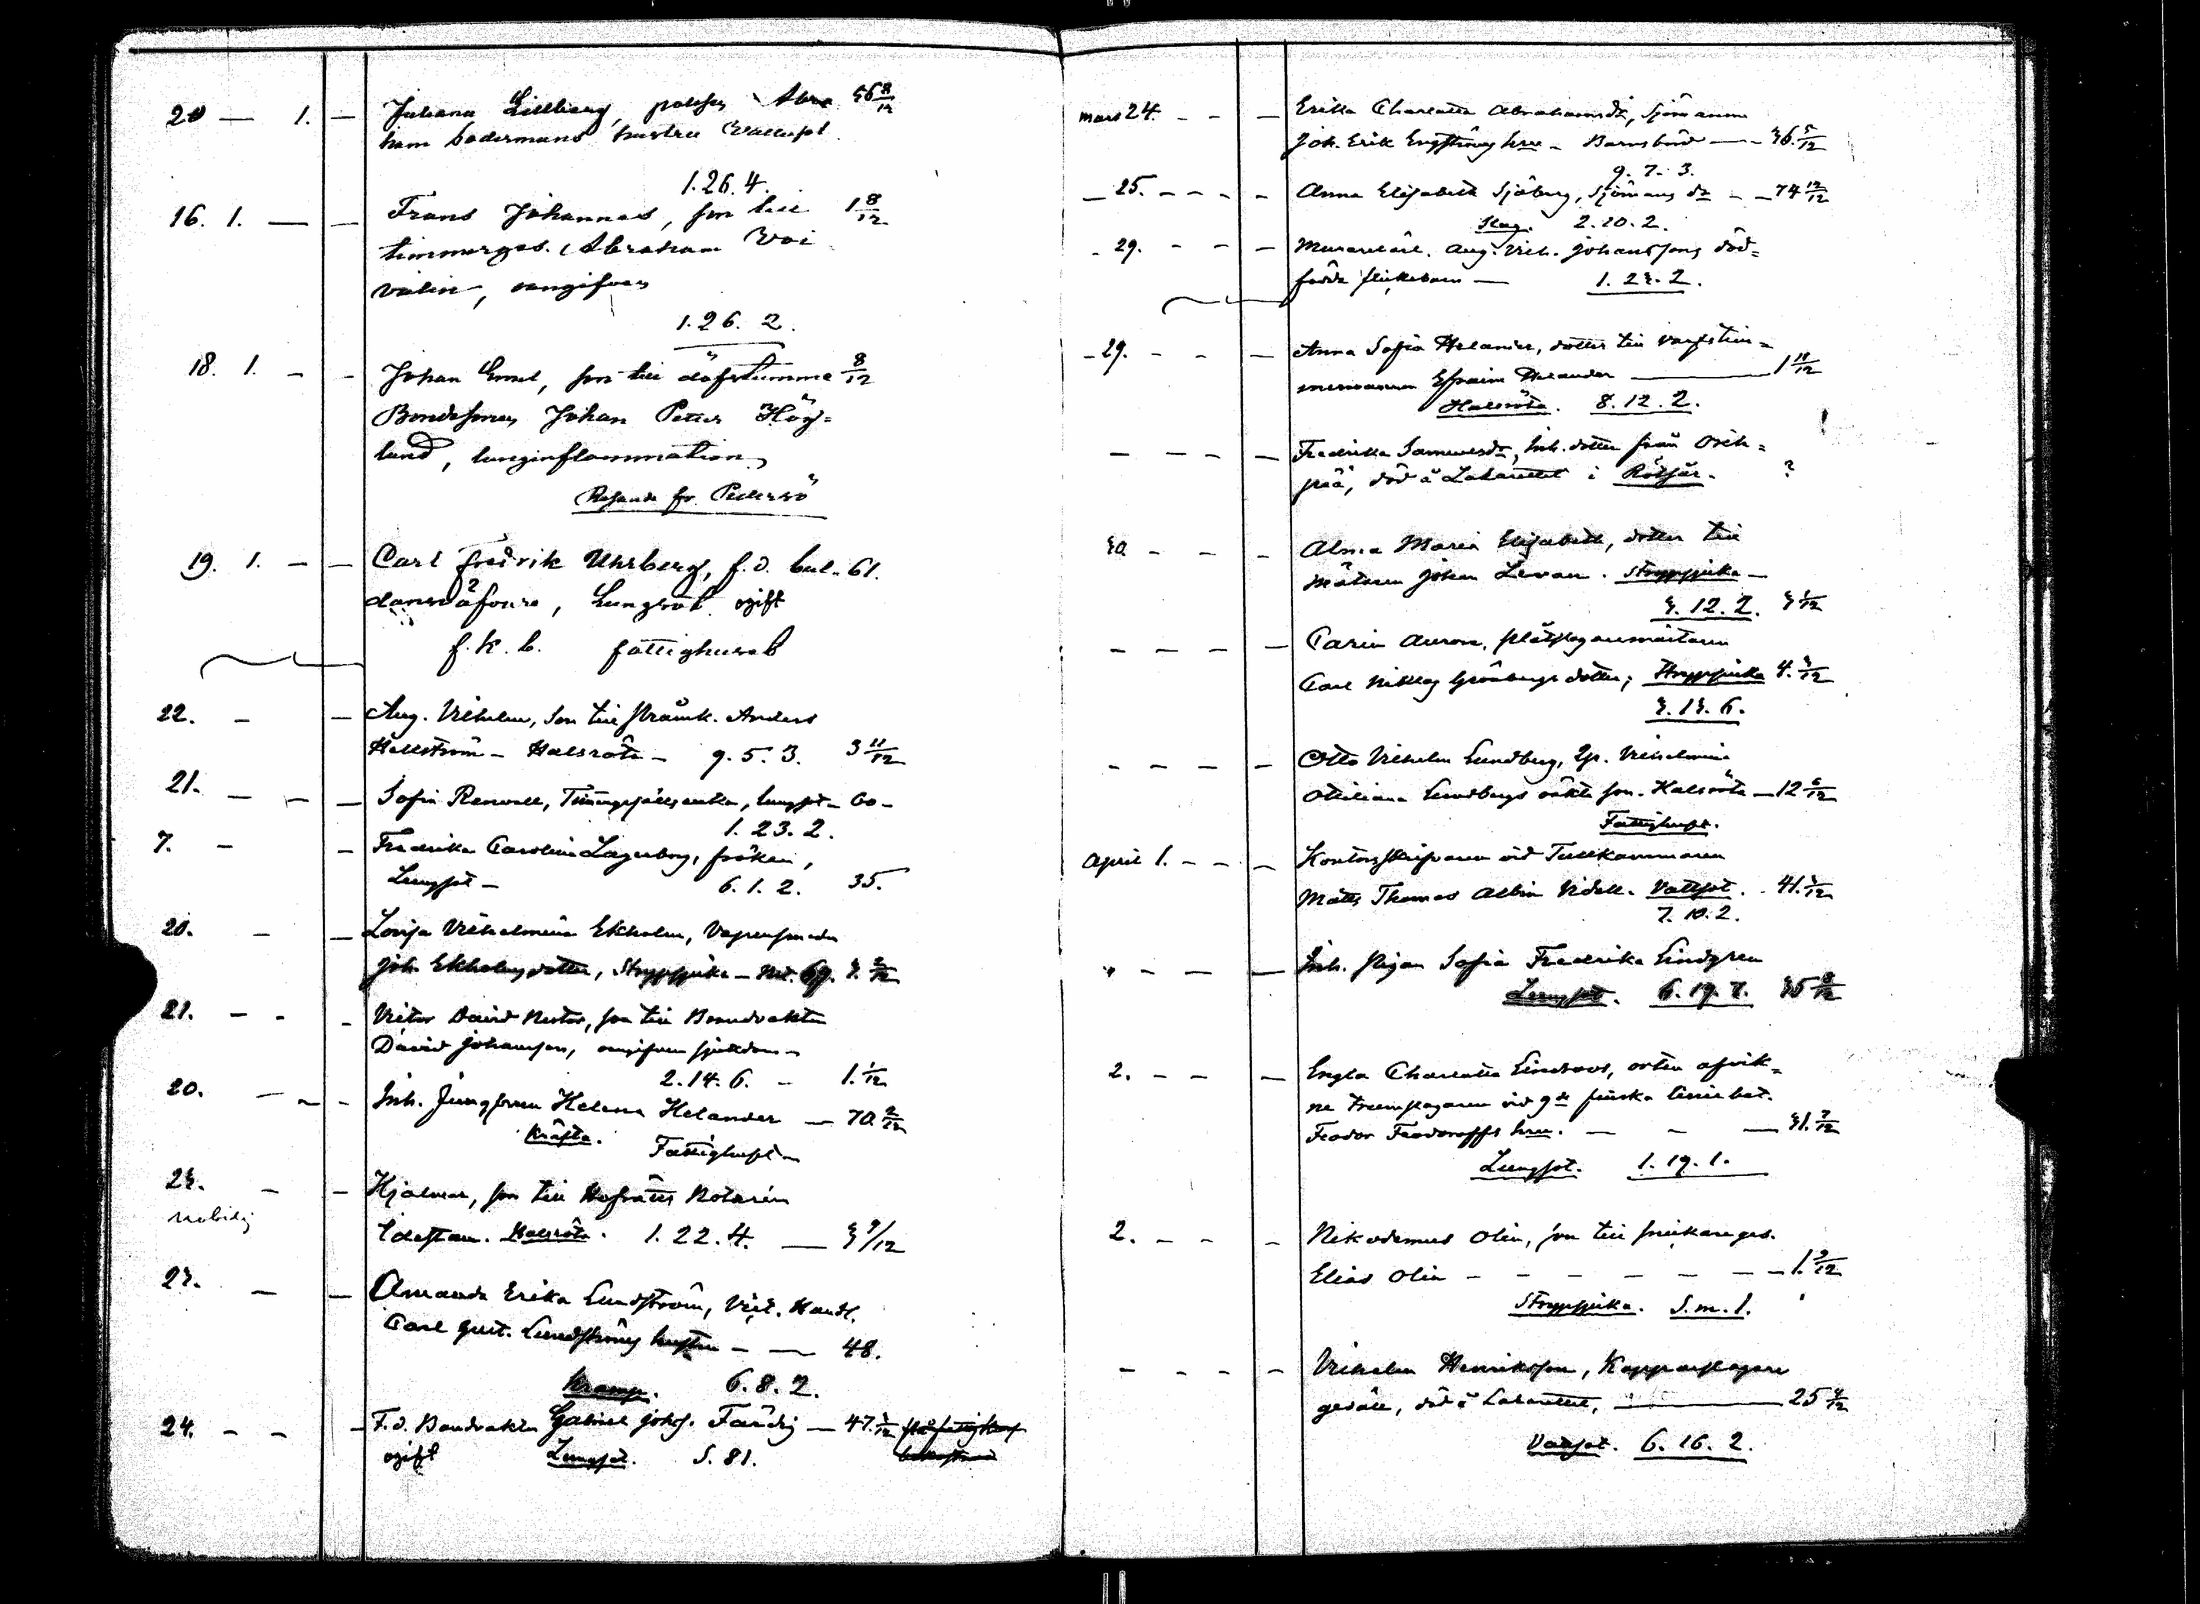 20 — 1. — Juliana Lillberg, Abra 36 8/12
ham Södermans hustru Vattust
1.26.4.
16. 1. — — Frans Johannes, son till 1 8/12
timmerges. Abraham Voi
valin, oangifven
1.26.2.
18. 1. — — Johan Emil, son till döfstumme 8/12
Bondesonen Johan Petter Hög=
lund, lunginflammation
Resande fr. Pedersö
19. 1. — — Carl Fredrik Uhrberg, f.d. bul- 61.
dansväfvare, Lungsot ogift
f.k.b. fattighuset
22. — — Aug. Vilhelm, son till Anders
Hellström — Halsröta — 9.5.3. 3 11/12
21. — — — Sofia Renvall, lungsot — 60 —
1.23.2.
7. — — Fredrika Carolina Lagerborg, fröken,
Lungsot — 6.1.2. 35.
20. — — Lovisa Vilhelmina Ekholm,
Joh. Ekholms dotter, Strypsjuka —
21. — - - Victor David Nestor, son till Brandvakten
David Johansson, oangifven sjukdom —
2.14.6. — 1. 1/12
20. — ~ - Inh. Jungfrun Helena Helander — 70. 2/12
Kräfta. Fattighuset —
23. — — Hjalmar, son till Hofrätts Notarien
Idestam. Halsröta. 1.22.4. — 3 9/12
23. — — Amanda Erika Lundström, Vict. Handl.
Carl Gust. Lundströms hustru — — 48.
Kramp. 6.8.2.
24. - - — F.d. Brandvakten Gabriel Johs. Färdig — 47.
ogift Lungsot. S. 81.
mars 24. - - — Erika Charlotta Abrahamsdr, Sjömannen
Joh. Erik Engströms hru — Barnsbörd — 36. 5/12
9.7.3.
— 25. - - - - Anna Elisabeth Sjöberg, Sjömans dr — — 74 10/12
Slag. 2.20.2.
- 29. - - — Murarelärl. Aug. Vilh. Johanssons död=
födda flickebarn — 1.23.2.
- 29. - - — Anna Sofia Helander, dotter till varfstim=
mermannen Efraim Helander — 1 11/12
Halsröta. 8.12.2.
— — — — Fredrika Samuelsdr, Inh. dotter från
död å Lazarettet i Rötfär. ?
30. - - - Alma Maria Elisabeth, dotter till
Mätaren Johan Levan. Strypsjuka —
3.12.2. 3 1/12
— — — — Carin Aurora, plåtslagaremästaren
Carl Niklas Grönbergs dotter, Strypsjuka 4. 3/12
3.13.6.
- — — — Otto Vilhelm Lundberg, Vilhelmina
Ottiliana Lundbergs oäkta son. Halsröta — 12 6/12
Fattighuset.
April 1. - - — Kontorsskrifvaren vid Tullkammaren
Matts Thomas Albin Videll. Vattsot. 41.
7.10.2.
" - - — Inh. Pigan Sofia Fredrika Lindgren
Lungsot. 6.19.7. 35 8/12
2. - - — Engla Charlotta Lindroos,
ne Trumslagaren vid 9de finska liniebat.
Feodor Feodoroffs hru. — - — 31. 7/12
Lungsot. 1.19.1.
2. - - - Nikodemus Olin, son till snickareges.
Elias Olin - - - - - — 1.
Strypsjuka. S.m.l.
- - - - Vilhelm Henriksson, Kopparslagare
gesäll, död å Lazarettet, — 25
Vattsot. 6.16.2.